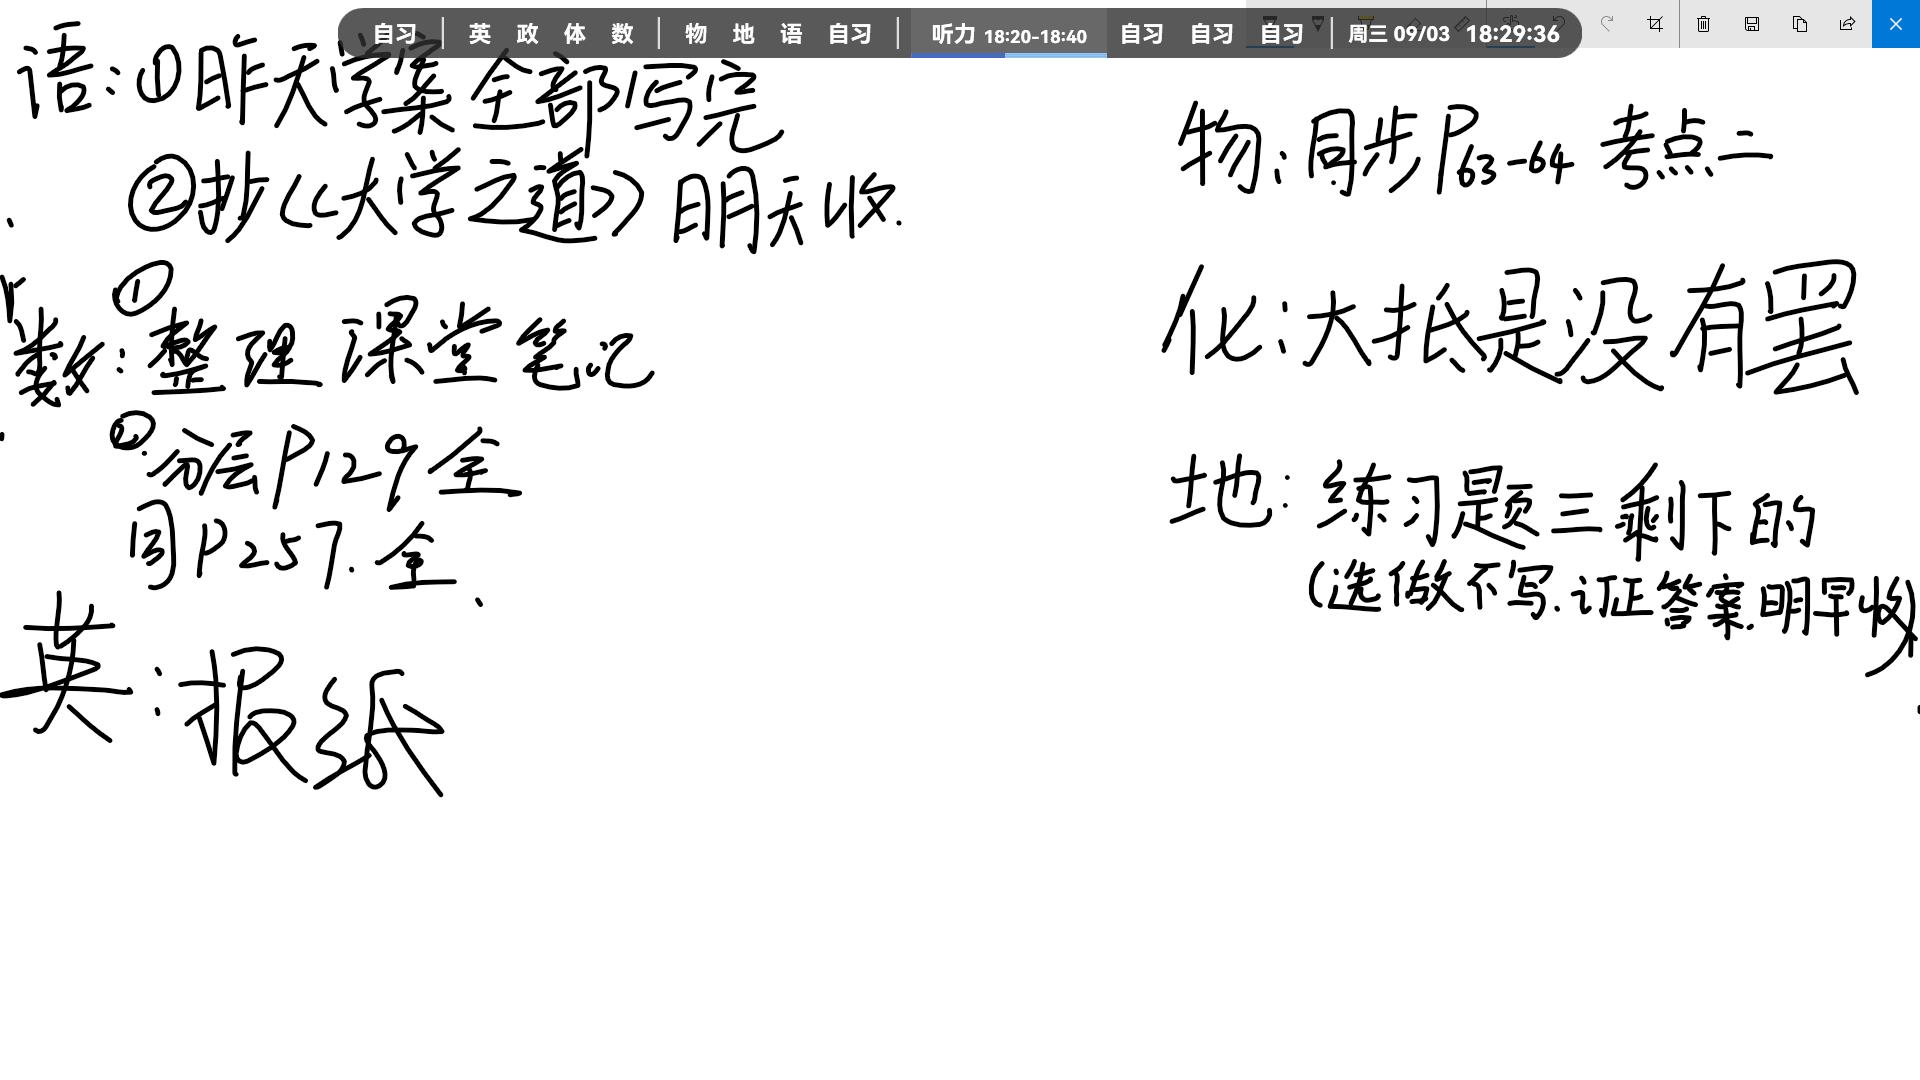 自习 | 英 政 体 数 | 物 地 语 自习 | 听力 18:20-18:40 自习 自习 自习 | 周三 09/03 18:29:36
语:①昨天学案全部写完
②抄《大学之道》明天收.
数:①整理课堂笔记
②.分层P129全
同P257.全、
英:报纸
物:同步P63-64 考点二
化:大抵是没有罢
地:练习题三剩下的
(选做不写.订正答案.明早收)